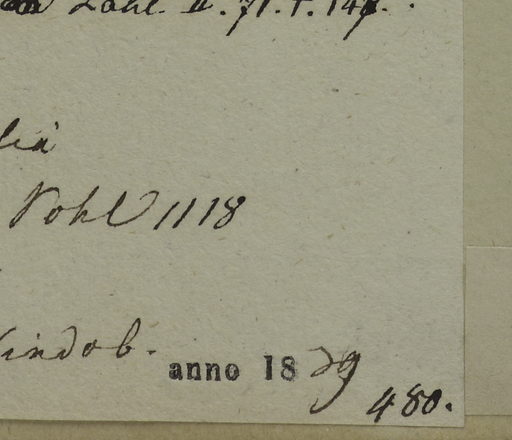 Vahl. II. 71. t. 147.
Pohl 1118
Vindob.
anno 18 39
480.